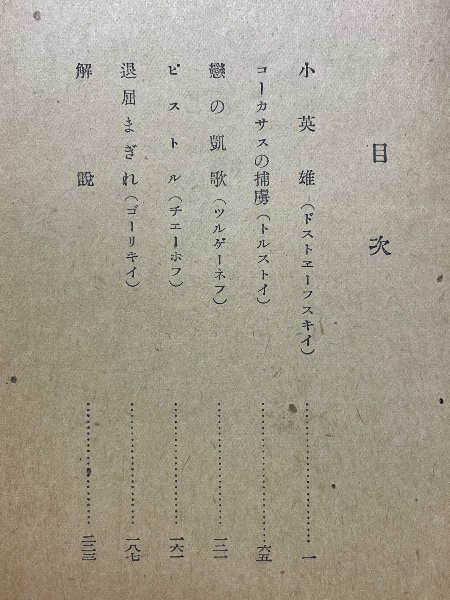 目次
小英雄(ドストエーフスキイ)…………一
コーカサスの捕虜(トルストイ)…………六五
戀の凱歌(ツルゲーネフ)…………一三一
ピストル(チエーホフ)…………一六一
退屈まぎれ(ゴーリキイ)…………一八七
解説…………二二三